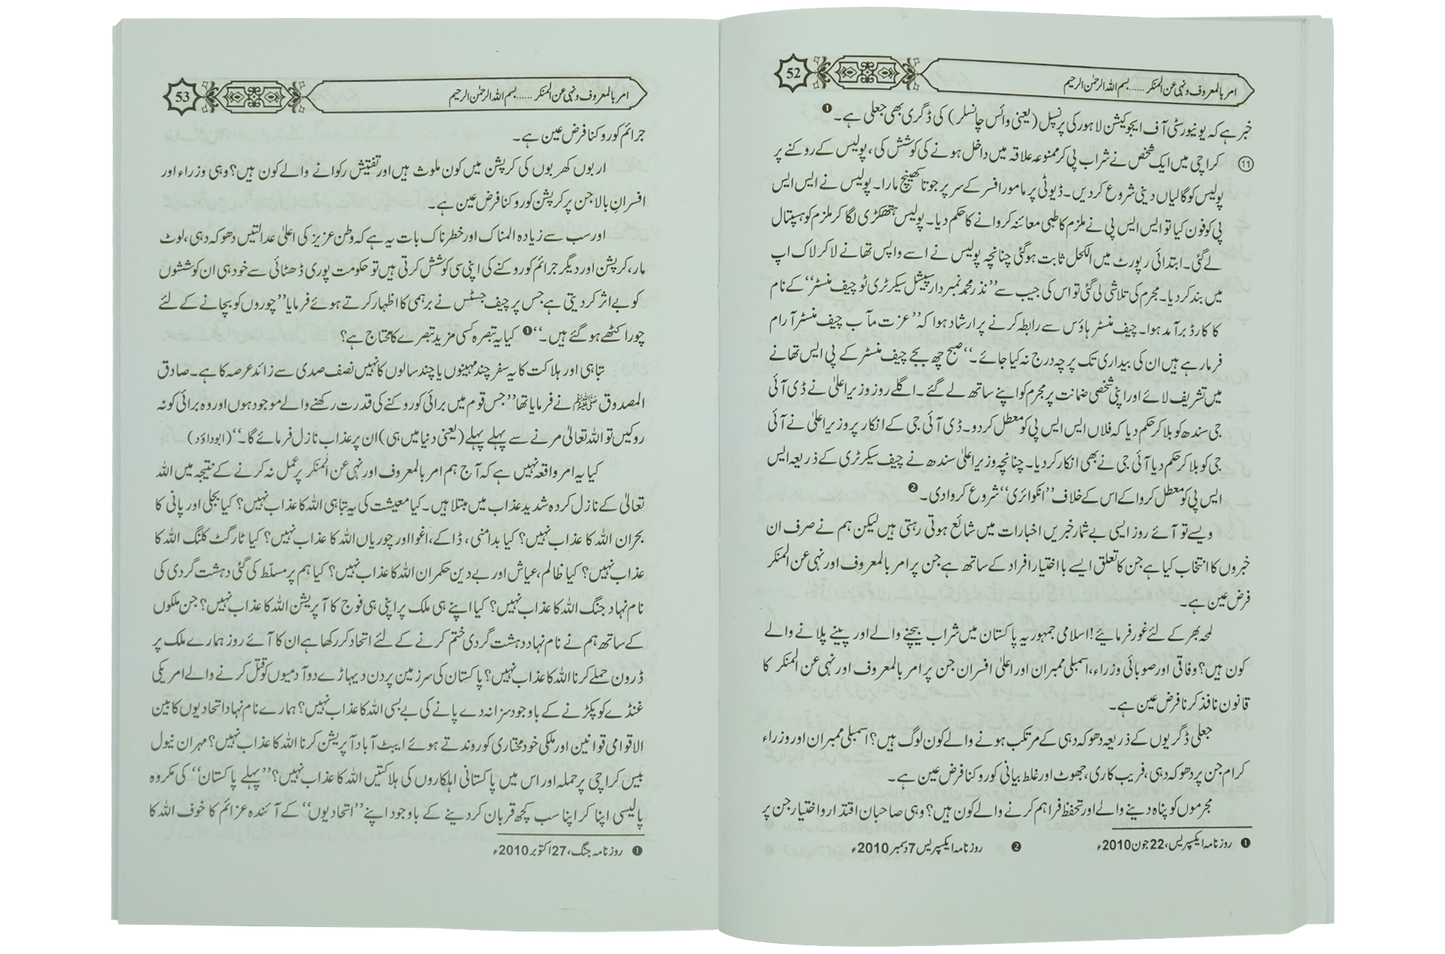 52
امر بالمعروف و نہی عن المنکر ...... بسم اللہ الرحمٰن الرحیم
خبر ہے کہ یونیورسٹی آف ایجوکیشن لاہور کی پرنسپل (یعنی وائس چانسلر) کی ڈگری بھی جعلی ہے۔ ❶
⑪ کراچی میں ایک شخص نے شراب پی کر ممنوعہ علاقہ میں داخل ہونے کی کوشش کی، پولیس کے روکنے پر
پولیس کو گالیاں دینی شروع کر دیں۔ ڈیوٹی پر مامور افسر کے سر پر جوتا کھینچ مارا۔ پولیس نے ایس ایس
پی کو فون کیا تو ایس ایس پی نے ملزم کا طبی معائنہ کروانے کا حکم دیا۔ پولیس ہتھکڑی لگا کر ملزم کو ہسپتال
لے گئی۔ ابتدائی رپورٹ میں الکحل ثابت ہوگئی چنانچہ پولیس نے اسے واپس تھانے لا کر لاک اپ
میں بند کر دیا۔ مجرم کی تلاشی لی گئی تو اس کی جیب سے ”نذر محمد نمبردار سپیشل سیکرٹری ٹو چیف منسٹر“ کے نام
کا کارڈ برآمد ہوا۔ چیف منسٹر ہاؤس سے رابطہ کرنے پر ارشاد ہوا کہ ”عزت مآب چیف منسٹر آرام
فرما رہے ہیں ان کی بیداری تک پرچہ درج نہ کیا جائے۔“ صبح چھ بجے چیف منسٹر کے پی ایس تھانے
میں تشریف لائے اور اپنی شخصی ضمانت پر مجرم کو اپنے ساتھ لے گئے۔ اگلے روز وزیر اعلیٰ نے ڈی آئی
جی سندھ کو بلا کر حکم دیا کہ فلاں ایس ایس پی کو معطل کر دو۔ ڈی آئی جی کے انکار پر وزیر اعلیٰ نے آئی
جی کو بلا کر حکم دیا آئی جی نے بھی انکار کر دیا۔ چنانچہ وزیر اعلیٰ سندھ نے چیف سیکرٹری کے ذریعہ ایس
ایس پی کو معطل کروا کے اس کے خلاف ”انکوائری“ شروع کروا دی۔ ❷
ویسے تو آئے روز ایسی بے شمار خبریں اخبارات میں شائع ہوتی رہتی ہیں لیکن ہم نے صرف ان
خبروں کا انتخاب کیا ہے جن کا تعلق ایسے با اختیار افراد کے ساتھ ہے جن پر امر بالمعروف اور نہی عن المنکر
فرض عین ہے۔
لمحہ بھر کے لئے غور فرمائیے! اسلامی جمہوریہ پاکستان میں شراب بیچنے والے اور پینے پلانے والے
کون ہیں؟ وفاقی اور صوبائی وزراء، اسمبلی ممبران اور اعلیٰ افسران جن پر امر بالمعروف اور نہی عن المنکر کا
قانون نافذ کرنا فرض عین ہے۔
جعلی ڈگریوں کے ذریعہ دھوکہ دہی کے مرتکب ہونے والے کون لوگ ہیں؟ اسمبلی ممبران اور وزراء
کرام جن پر دھوکہ دہی، فریب کاری، جھوٹ اور غلط بیانی کو روکنا فرض عین ہے۔
مجرموں کو پناہ دینے والے اور تحفظ فراہم کرنے والے کون ہیں؟ وہی صاحبان اقتدار و اختیار جن پر
❶ روزنامہ ایکسپریس، 22 جون 2010ء ❷ روزنامہ ایکسپریس 7 دسمبر 2010ء
53
امر بالمعروف و نہی عن المنکر ...... بسم اللہ الرحمٰن الرحیم
جرائم کو روکنا فرض عین ہے۔
اربوں کھربوں کی کرپشن میں کون ملوث ہیں اور تفتیش رکوانے والے کون ہیں؟ وہی وزراء اور
افسرانِ بالا جن پر کرپشن کو روکنا فرض عین ہے۔
اور سب سے زیادہ المناک اور خطرناک بات یہ ہے کہ وطن عزیز کی اعلیٰ عدالتیں دھوکہ دہی، لوٹ
مار، کرپشن اور دیگر جرائم کو روکنے کی اپنی سی کوشش کرتی ہیں تو حکومت پوری ڈھٹائی سے خود ہی ان کوششوں
کو بے اثر کر دیتی ہے جس پر چیف جسٹس نے برہمی کا اظہار کرتے ہوئے فرمایا ”چوروں کو بچانے کے لئے
چور اکٹھے ہو گئے ہیں۔“ ❶ کیا یہ تبصرہ کسی مزید تبصرے کا محتاج ہے؟
تباہی اور ہلاکت کا یہ سفر چند مہینوں یا چند سالوں کا نہیں نصف صدی سے زائد عرصہ کا ہے۔ صادق
المصدوق ﷺ نے فرمایا تھا ”جس قوم میں برائی کو روکنے کی قدرت رکھنے والے موجود ہوں اور وہ برائی کو نہ
روکیں تو اللہ تعالیٰ مرنے سے پہلے پہلے (یعنی دنیا میں ہی) ان پر عذاب نازل فرمائے گا۔“ (ابوداؤد)
کیا یہ امر واقعہ نہیں ہے کہ آج ہم امر بالمعروف اور نہی عن المنکر پر عمل نہ کرنے کے نتیجہ میں اللہ
تعالیٰ کے نازل کردہ شدید عذاب میں مبتلا ہیں۔ کیا معیشت کی یہ تباہی اللہ کا عذاب نہیں؟ کیا بجلی اور پانی کا
بحران اللہ کا عذاب نہیں؟ کیا بدامنی، ڈاکے، اغوا اور چوریاں اللہ کا عذاب نہیں؟ کیا ٹارگٹ کلنگ اللہ کا
عذاب نہیں؟ کیا ظالم، عیاش اور بے دین حکمران اللہ کا عذاب نہیں؟ کیا ہم پر مسلّط کی گئی دہشت گردی کی
نام نہاد جنگ اللہ کا عذاب نہیں؟ کیا اپنے ہی ملک پر اپنی ہی فوج کا آپریشن اللہ کا عذاب نہیں؟ جن ملکوں
کے ساتھ ہم نے نام نہاد دہشت گردی ختم کرنے کے لئے اتحاد کر رکھا ہے ان کا آئے روز ہمارے ملک پر
ڈرون حملے کرنا اللہ کا عذاب نہیں؟ پاکستان کی سرزمین پر دن دیہاڑے دو آدمیوں کو قتل کرنے والے امریکی
غنڈے کو پکڑنے کے باوجود سزا نہ دے پانے کی بے بسی اللہ کا عذاب نہیں؟ ہمارے نام نہاد اتحادیوں کا بین
الاقوامی قوانین اور ملکی خود مختاری کو روندتے ہوئے ایبٹ آباد آپریشن کرنا اللہ کا عذاب نہیں؟ مہران نیول
بیس کراچی پر حملہ اور اس میں پاکستانی اہلکاروں کی ہلاکتیں اللہ کا عذاب نہیں؟ ”پہلے پاکستان“ کی مکروہ
پالیسی اپنا کر اپنا سب کچھ قربان کر دینے کے باوجود اپنے ”اتحادیوں“ کے آئندہ عزائم کا خوف اللہ کا
❶ روزنامہ جنگ، 27 اکتوبر 2010ء